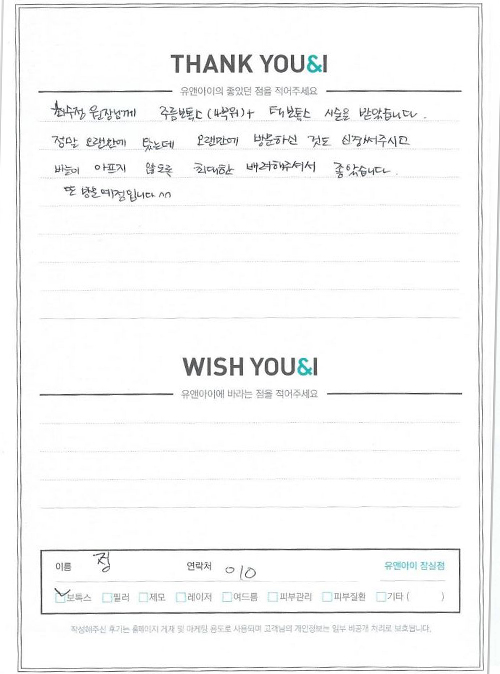 THANK YOU&I
유앤아이의 좋았던 점을 적어주세요
최수정 원장님께 주름보톡스 (4부위) + 턱보톡스 시술을 받았습니다.
정말 오랜만에 왔는데 오랜만에 방문하신 것도 신경써주시고
바늘이 아프지 않도록 최대한 배려해주셔서 좋았습니다.
또 방문예정입니다 ^^
WISH YOU&I
유앤아이에 바라는 점을 적어주세요
이름 정 연락처 010 유앤아이 잠실점
보톡스 필러 제모 레이저 여드름 피부관리 피부질환 기타 ( )
작성해주신 후기는 홈페이지 게재 및 마케팅 용도로 사용되며 고객님의 개인정보는 일부 비공개 처리로 보호됩니다.